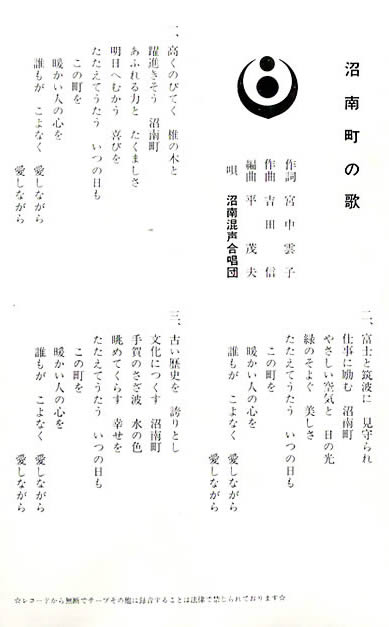 沼南町の歌
作詞 宮中雲子
作曲 吉田信
編曲 平茂夫
唄 沼南混声合唱団
一、高くのびてく 椎の木と
躍進きそう 沼南町
あふれる力と たくましさ
明日へむかう 喜びを
たたえてうたう いつの日も
この町を
暖かい人の心を
誰もが こよなく 愛しながら
愛しながら
二、富士と筑波に 見守られ
仕事に励む 沼南町
やさしい空気と 日の光
緑のそよぐ 美しさ
たたえてうたう いつの日も
この町を
暖かい人の心を
誰もが こよなく 愛しながら
愛しながら
三、古い歴史を 誇りとし
文化につくす 沼南町
手賀のさざ波 水の色
眺めてくらす 幸せを
たたえてうたう いつの日も
この町を
暖かい人の心を
誰もが こよなく 愛しながら
愛しながら
☆レコードから無断でテープその他に録音することは法律で禁じられております☆